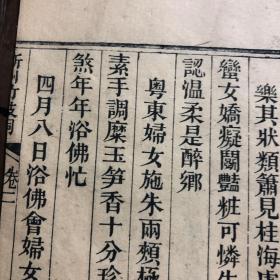 樂其狀類簫見桂海
蠻女嬌癡鬭豔粧可憐生
認温柔是醉鄉
粤東婦女施朱兩頰極
素手調麋玉笋香十分珍
煞年年浴佛忙
四月八日浴佛會婦女
卷二